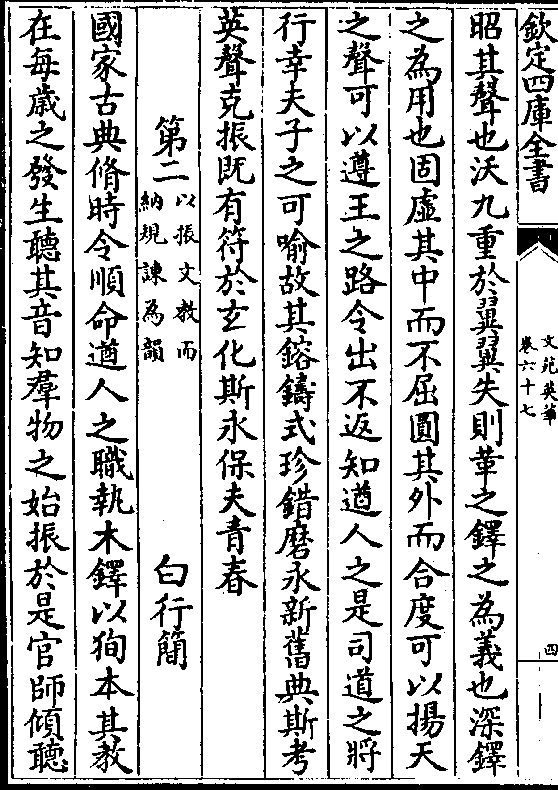 欽定四庫全書
文苑英華
卷六十七
四
昭其聲也沃九重於翼翼失則革之鐸之為義也深鐸
之為用也固虛其中而不屈圓其外而合度可以揚天
之聲可以遵王之路令出不返知遒人之是司道之將
行幸夫子之可喻故其鎔鑄式珍錯磨永新舊典斯考
英聲克振既有符於玄化斯永保夫青春
第二
以振文教而
納規諫為韻
白行簡
國家古典脩時令順命遒人之職執木鐸以狥本其教
在每歳之發生聽其音知羣物之始振於是官師傾聽